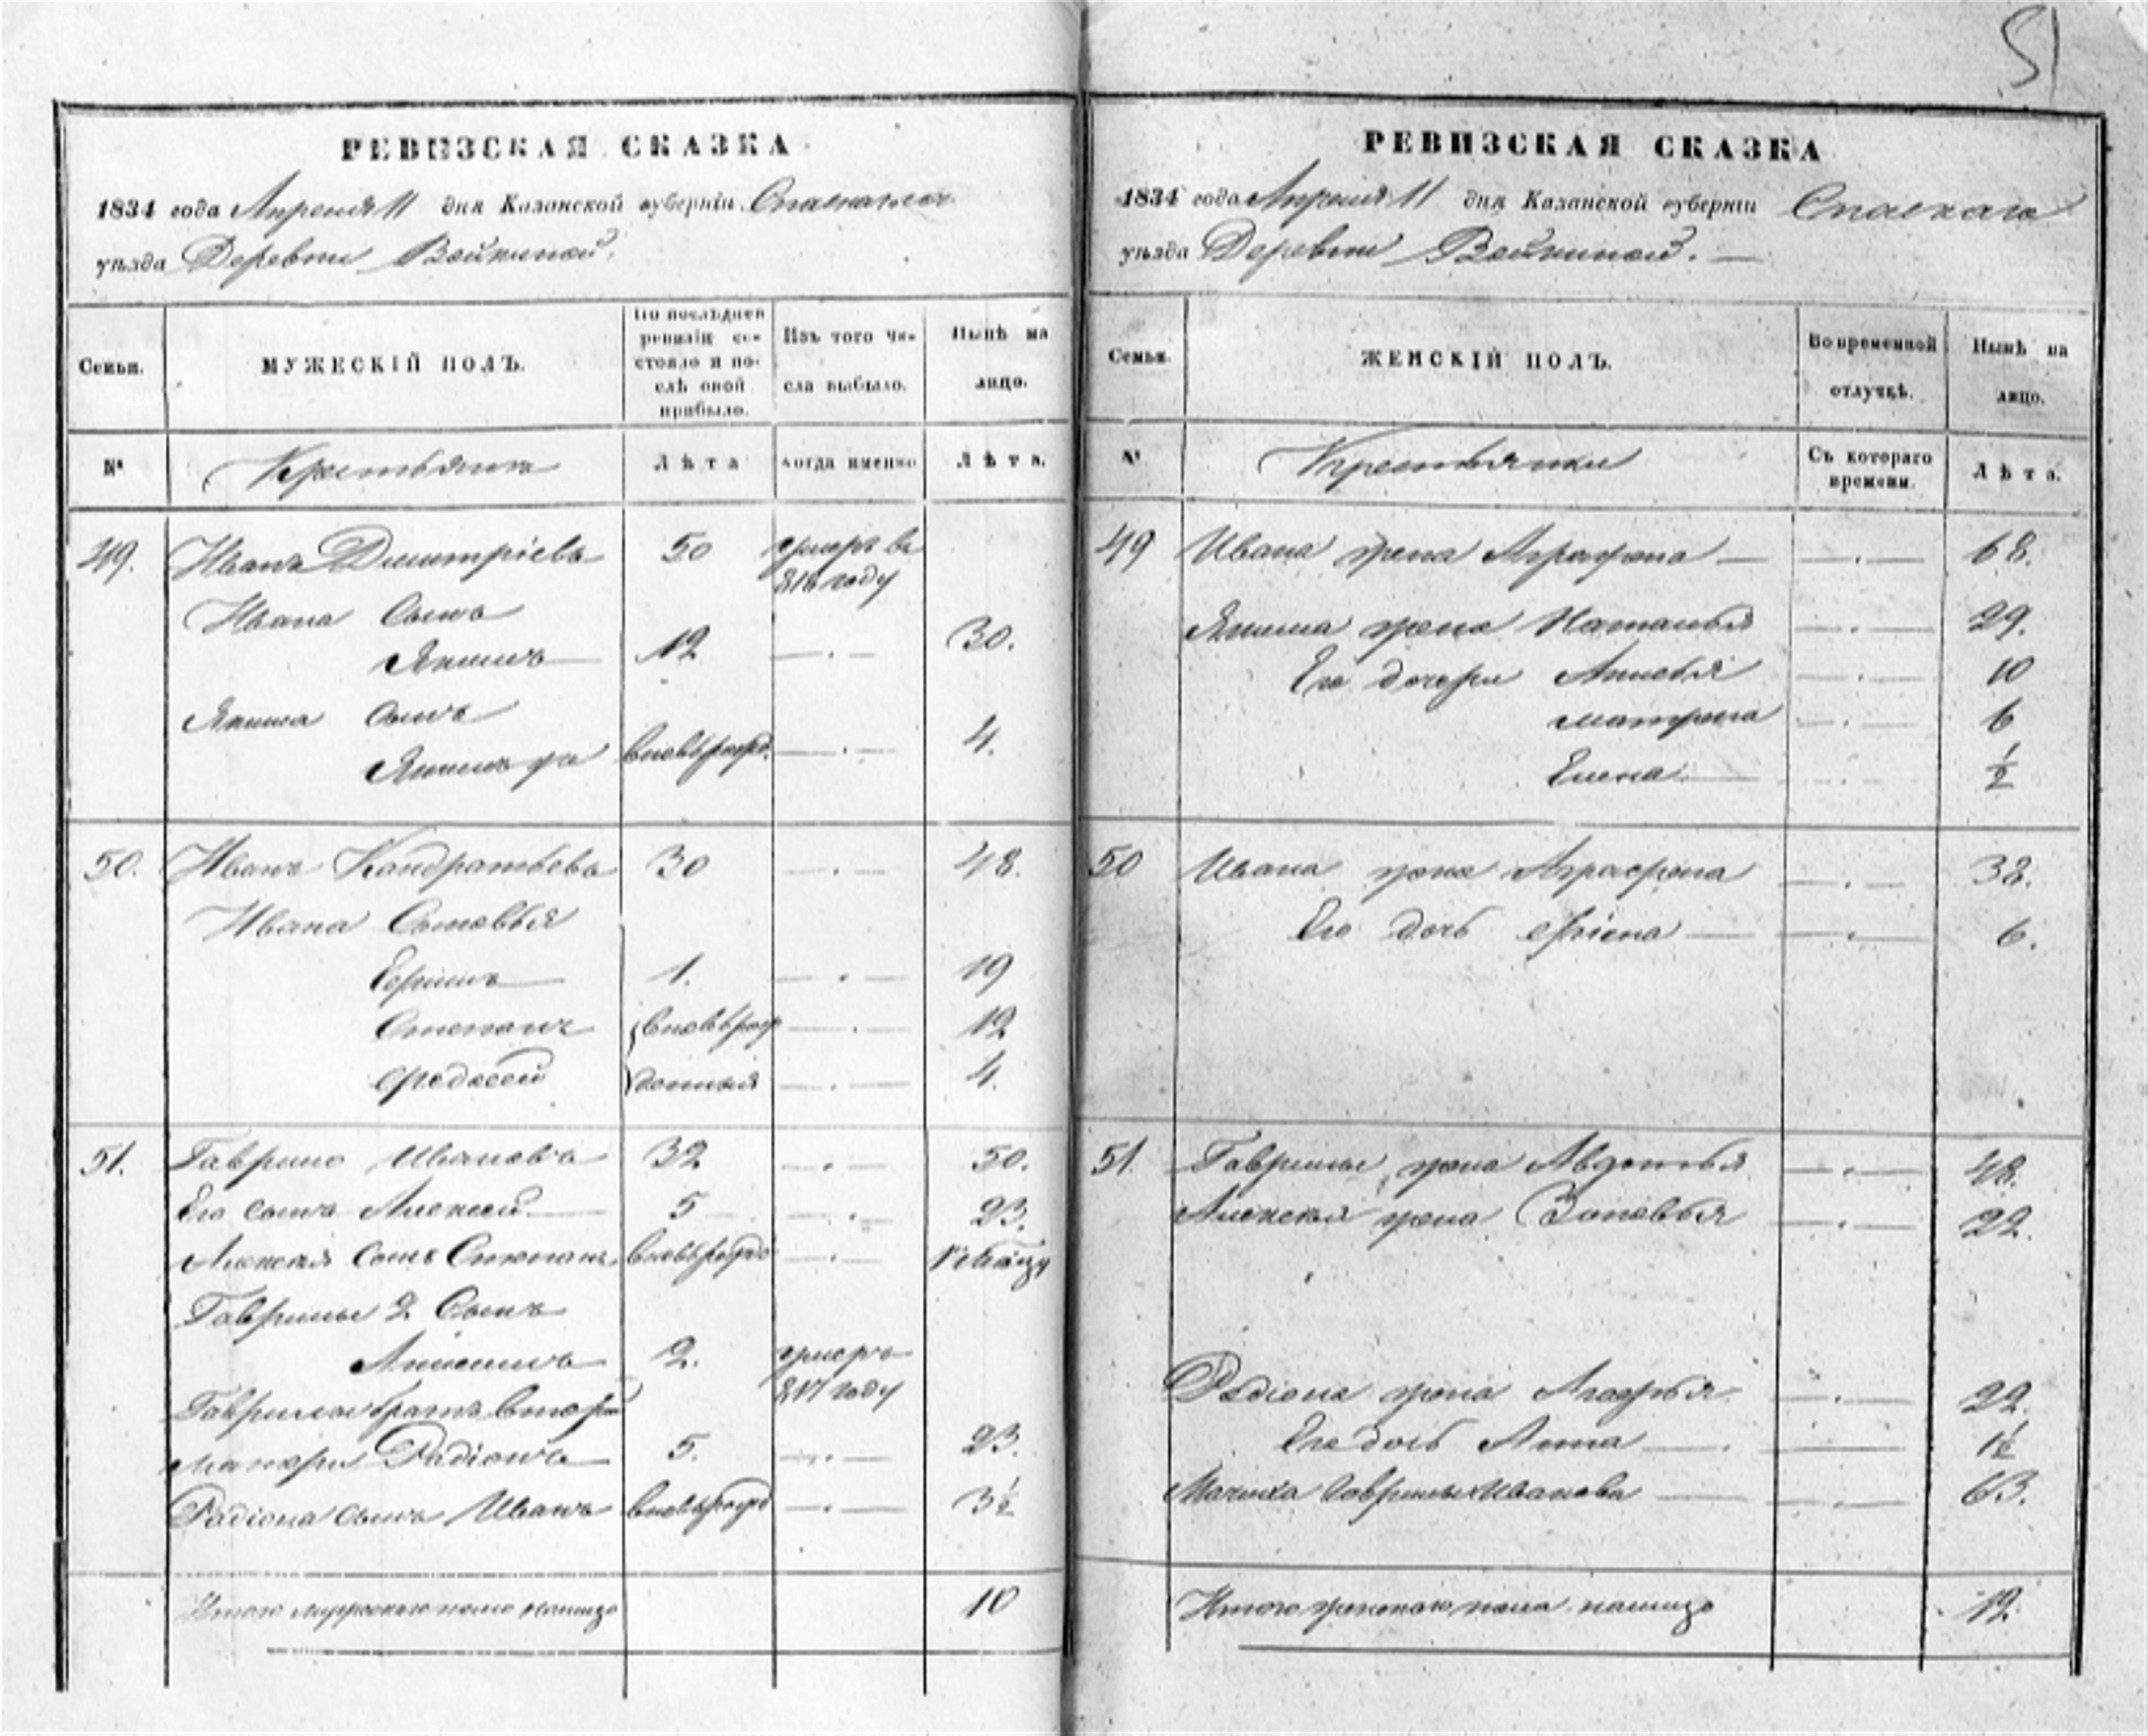 51
РЕВИЗСКАЯ СКАЗКА
1834 года Апреля 11 дня Казанской губерніи Спаскаго
уѣзда Деревни Войкиной.
Семьи.
МУЖЕСКІЙ ПОЛЪ.
По послѣдней ревизіи состояло и послѣ оной прибыло.
Изъ того числа выбыло.
Нынѣ на лицо.
№
Крестьяня
Лѣта
когда именно
Лѣта.
49. Иванъ Дмитріевъ 50 умеръ въ
816 году
Ивана Сынъ
Якимъ 12 30.
Якима Сынъ
вновь рожд. 4.
50. Иванъ Кандратьевъ 30 48.
Ивана Сыновья
Ефимъ 1. 19
Степанъ вновь рож 12
Федосей денныя 4.
51. Гаврило Ивановъ 32 50.
Его сынъ Алексей 5 23.
Алексея Сынъ Степанъ вновь рожд
Гаврилы 2 Сынъ
2. умеръ
817 году
Гаврилы братъ второй
матери Радіонъ 5. 23.
Радіона сынъ Иванъ вновь рожд 3½
Итого мужескаго пола налицо 10
РЕВИЗСКАЯ СКАЗКА
1834 года Апреля 11 дня Казанской губерніи Спаскаго
уѣзда Деревни Войкиной.
Семьи.
ЖЕНСКІЙ ПОЛЪ.
Во временной отлучкѣ.
Нынѣ на лицо.
№
Крестьянки
Съ котораго времени.
Лѣта.
49 Ивана жена Аграфена 68.
Якима жена Наталья 29.
Его дочери 10
матрена 6
Елена ½
50 Ивана жена Аграфена 38.
Его дочь 6.
51. Гаврилы жена Авдотья 48.
Алексея жена Зиновья 22.
Радіона жена 22.
Его дочь Анна 1½
Мачиха Гаврилы Иванова 63.
Итого женскаго пола налицо 12.